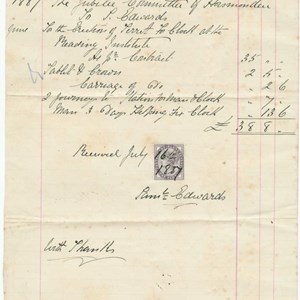 1887 The Jubilee Committee of
To S. Edwards
June To the Erection of Turret for Clock at the
Reading Institute
As pr Contract 35 - -
Tablet & Crown 2 5 -
Carriage of Do 2 6
2 journeys to Station for Man & Clock - 7 -
Man 3 Days Helping fix Clock - 13 6
£ 38 8 -
Received July 16th
1887
Saml Edwards
With Thanks